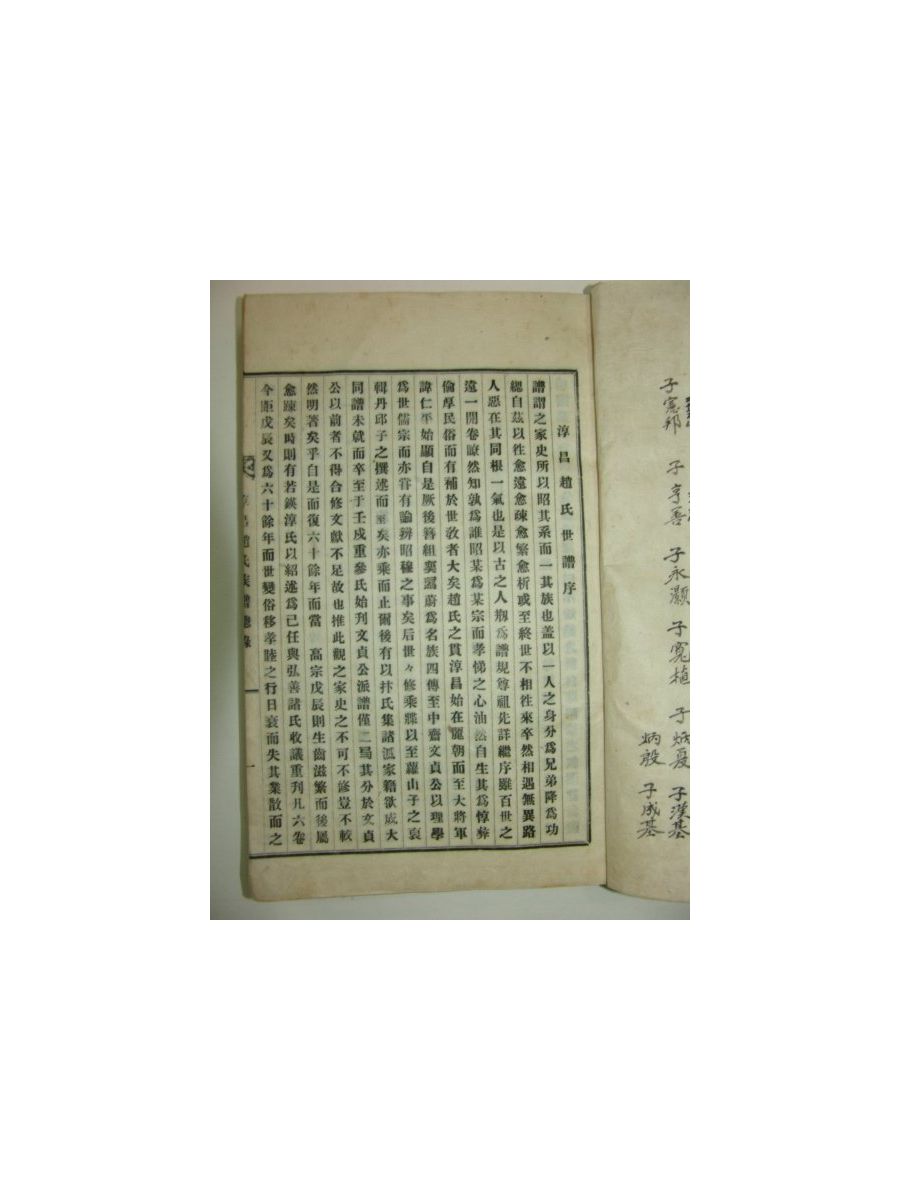 子憲邦 子亨善 子永灝 子寬植 子炳夏 子漢基
炳殷 子成基
淳昌趙氏世譜序
譜謂之家史所以昭其系而一其族也盖以一人之身分爲兄弟降爲功
緦自茲以徃愈遠愈疎愈繁愈析或至終世不相徃來卒然相遇無異路
人惡在其同根一氣也是以古之人刱爲譜規尊祖先詳繼序雖百世之
遠一開卷瞭然知孰爲誰昭某爲某宗而孝悌之心油然自生其爲惇彛
倫厚民俗而有補於世敎者大矣趙氏之貫淳昌始在麗朝而至大將軍
諱仁平始顯自是厥後簪組奕爀蔚爲名族四傳至中齋文貞公以理學
爲世儒宗而亦甞有論辨昭穆之事矣后世々修乘牒以至蘿山子之裒
輯丹邱子之撰述而至矣亦乘而止爾後有以抃氏集諸派家籍欲成大
同譜未就而卒至于壬戌重參氏始刋文貞公派譜僅二㢧其分於文貞
公以前者不得合修文獻不足故也推此觀之家史之不可不修豈不較
然明著矣乎自是而復六十餘年而當 高宗戊辰則生齒滋繁而後屬
愈踈矣時則有若鍈淳氏以紹述爲已任與弘善諸氏收議重刋凡六卷
今距戊辰又爲六十餘年而世變俗移孝睦之行日衰而失其業散而之
淳昌趙氏族譜總錄 一